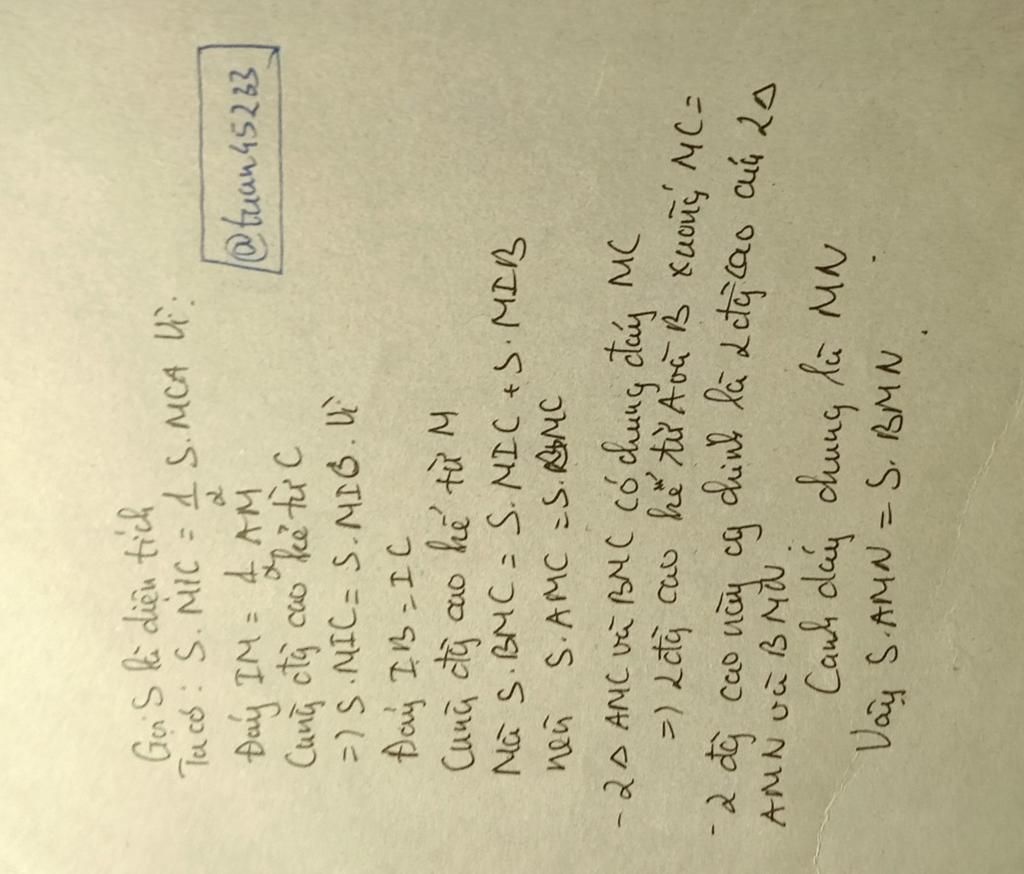 @tuan45233
Gọi S là diện tích
Ta có: S.MIC = 1/2 S.MCA Vì:
Đáy IM = 1/2 AM
Cùng đg cao kẻ từ C
=) S.MIC = S.MIB. Vì
Đáy IB = IC
Cùng đg cao kẻ từ M
Mà S.BMC = S.MIC + S.MIB
nên S.AMC = S.BMC
- 2Δ AMC và BMC có chung đáy MC
=) 2 đg cao kẻ từ A và B xuống MC =
- 2 đg cao này cg chính là 2 đg cao của 2Δ
AMN và BMN.
Cạnh đáy chung là MN
Vậy S.AMN = S.BMN